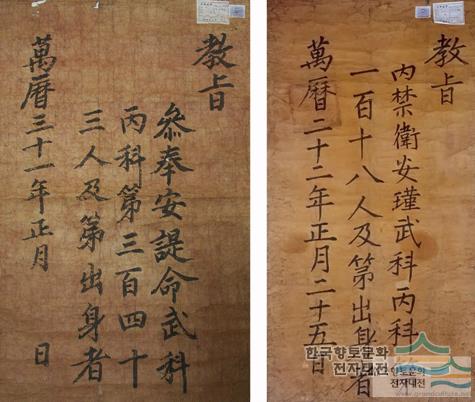 教旨
叅奉安諟命武科
丙科第三百四十
三人及第出身者
萬曆三十一年正月 日
教旨
內禁衛安瑾武科丙科
一百十八人及第出身者
萬曆二十二年正月二十五日
한국향토문화
전자대전
향토문화
전자대전
www.grandculture.net